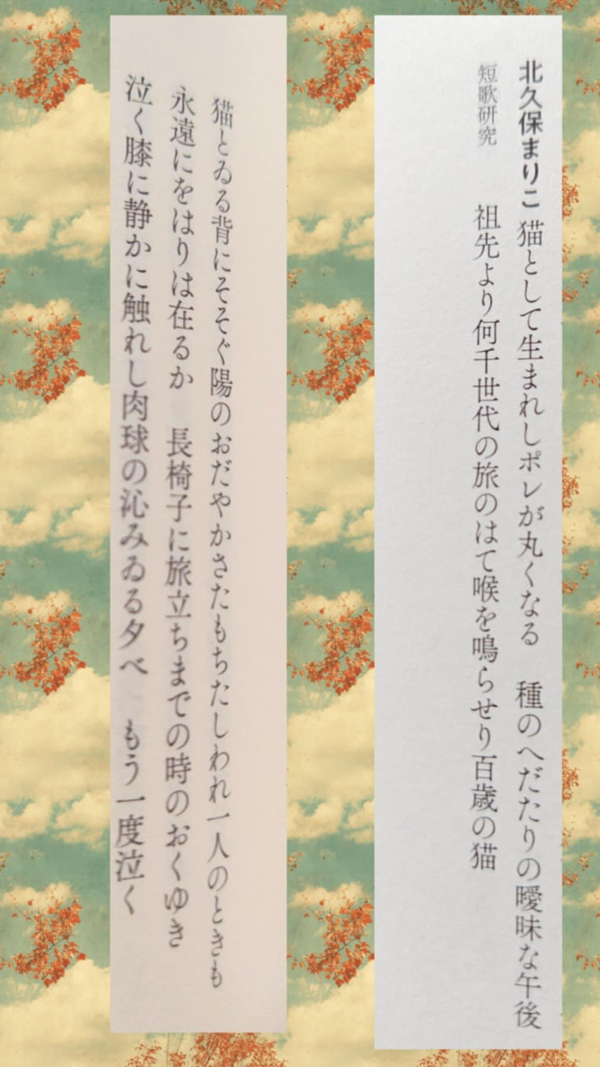 北久保まりこ 猫として生まれしポレが丸くなる　種のへだたりの曖昧な午後
短歌研究　祖先より何千世代の旅のはて喉を鳴らせり百歳の猫
猫とゐる背にそそぐ陽のおだやかさたもちたしわれ一人のときも
永遠にをはりは在るか　長椅子に旅立ちまでの時のおくゆき
泣く膝に静かに触れし肉球の沁みゐる夕べ　もう一度泣く